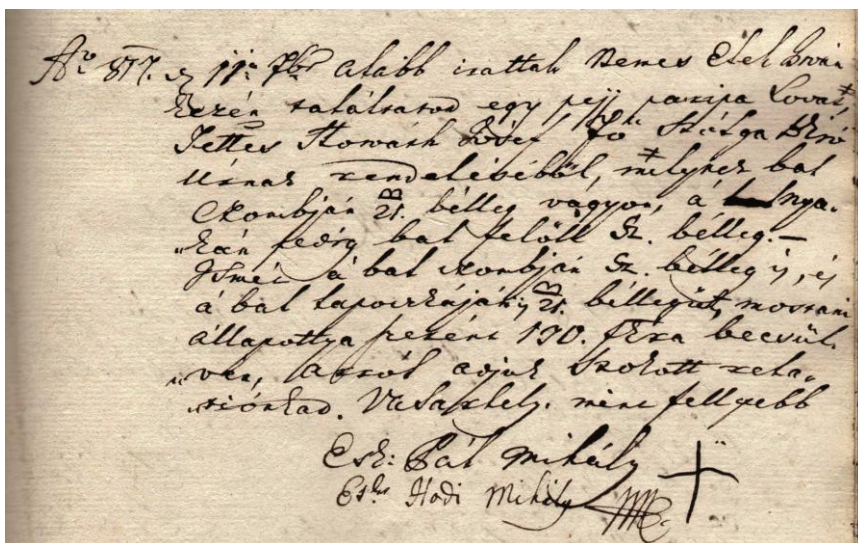 Aº 817. d 11a 7br alább irattak Nemes Étek István
kezén találtatod egy pejj paripa Lovat,
Tettes Horváth Jósef Fő Szolga Bíró
Úrnak rendeléséből, melynek bal
czombján B 21. bélleg vagyon, á nya-
kán pedig bal felöll Sz. bélleg. —
Ismét á bal czombján Sz. bélleg is, és
á bal lapoczkáján is B 21. bélleg
mostani
állapottya szerént 190. fkra becsül-
vén, arról adjuk
rela-
tiónkad. Vásárhely. mint fellyebb
Esk: Pál Mihály
Esk. Hodi Mihály